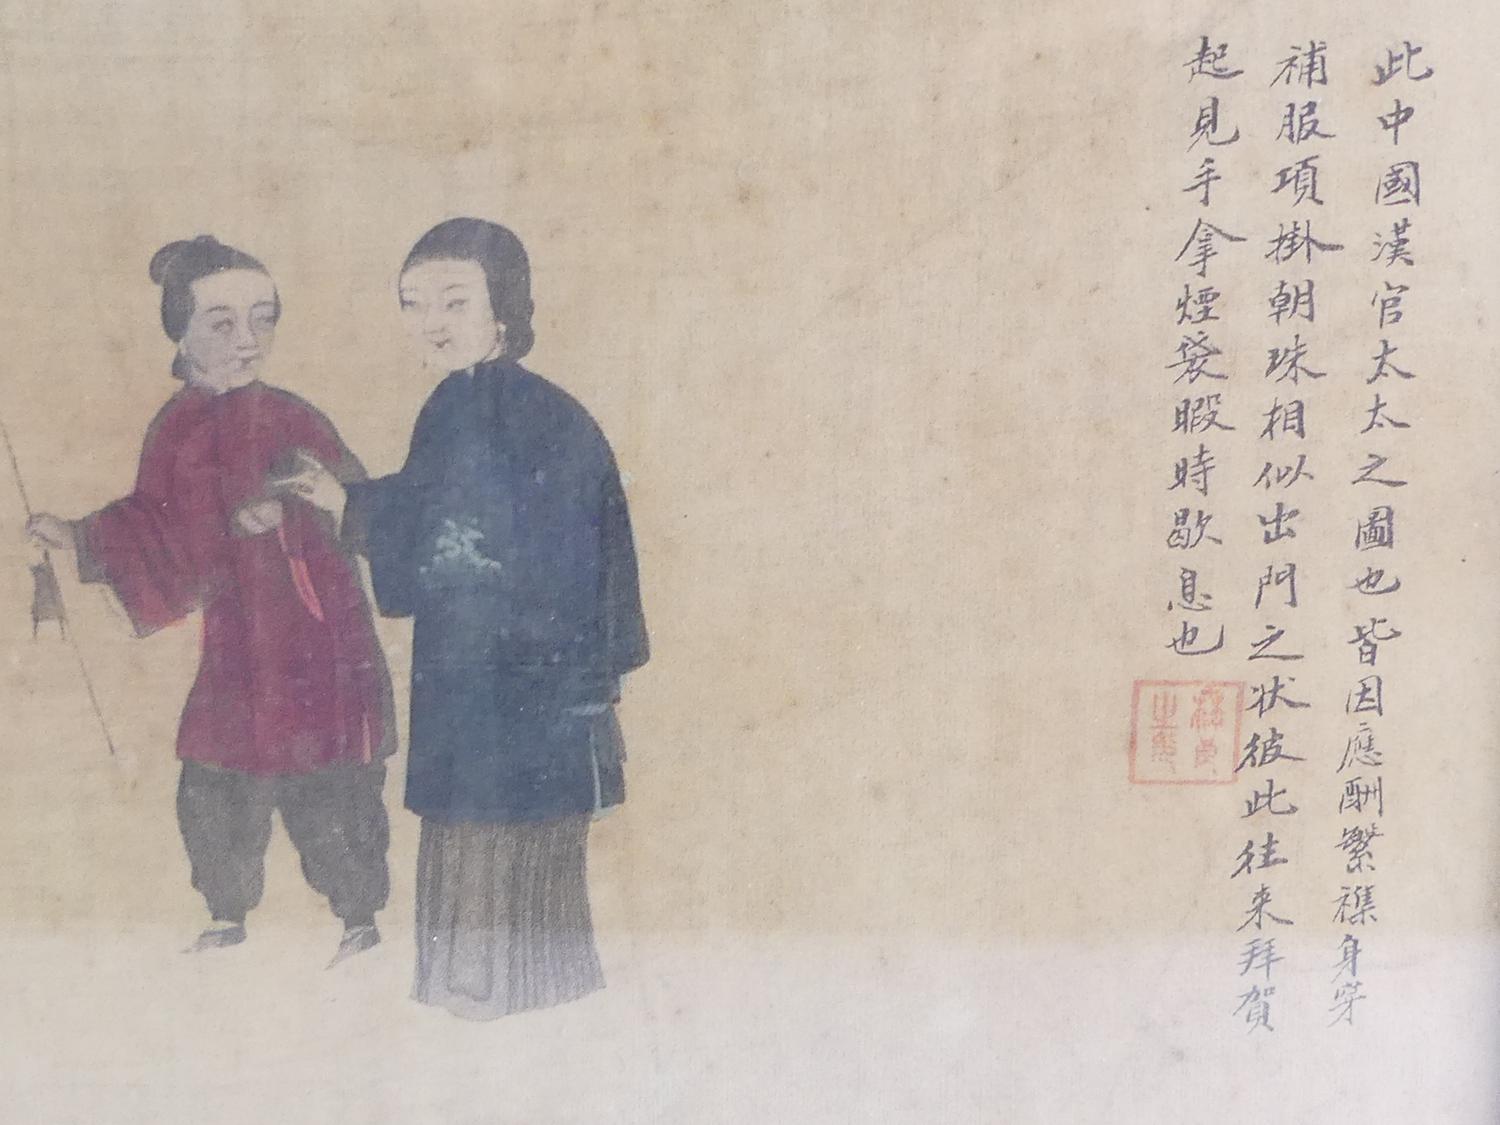 此中國漢官太太之圖也皆因應酬繁襍身穿
補服項掛朝珠相似出門之状彼此往来拜賀
起見手拿煙袋暇時歇息也